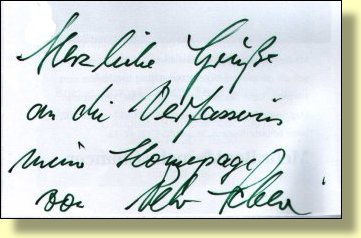 Herzliche Grüße
an die Verfasserin
meine Homepage
von